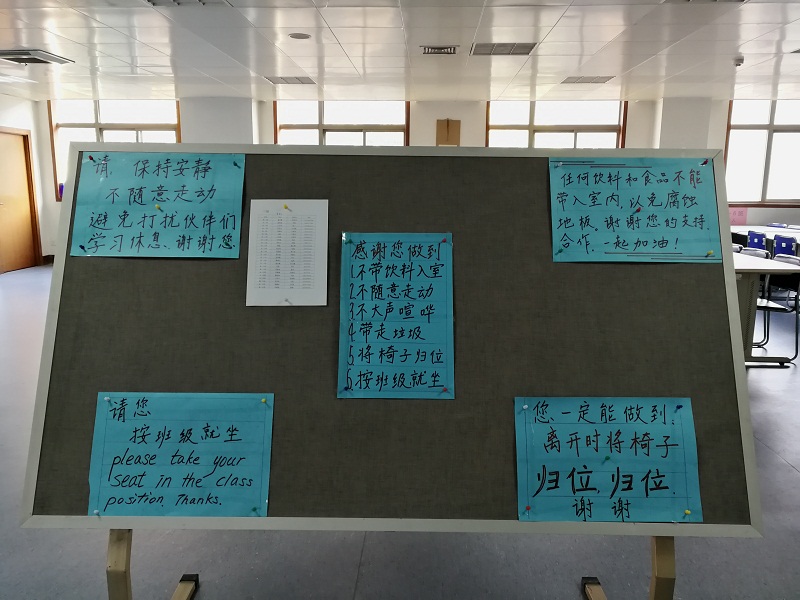 请 保持安静
不随意走动
避免打扰伙伴们
学习休息、谢谢您
感谢您做到
1.不带饮料入室
2.不随意走动
3.不大声喧哗
4.带走垃圾
5.将椅子归位
6.按班级就坐
任何饮料和食品不能
带入室内,以免腐蚀
地板。谢谢您的支持
合作,一起加油!
请您
按班级就坐
please take your
seat in the class
position. Thanks.
您一定能做到:
离开时将椅子
归位,归位.
谢谢